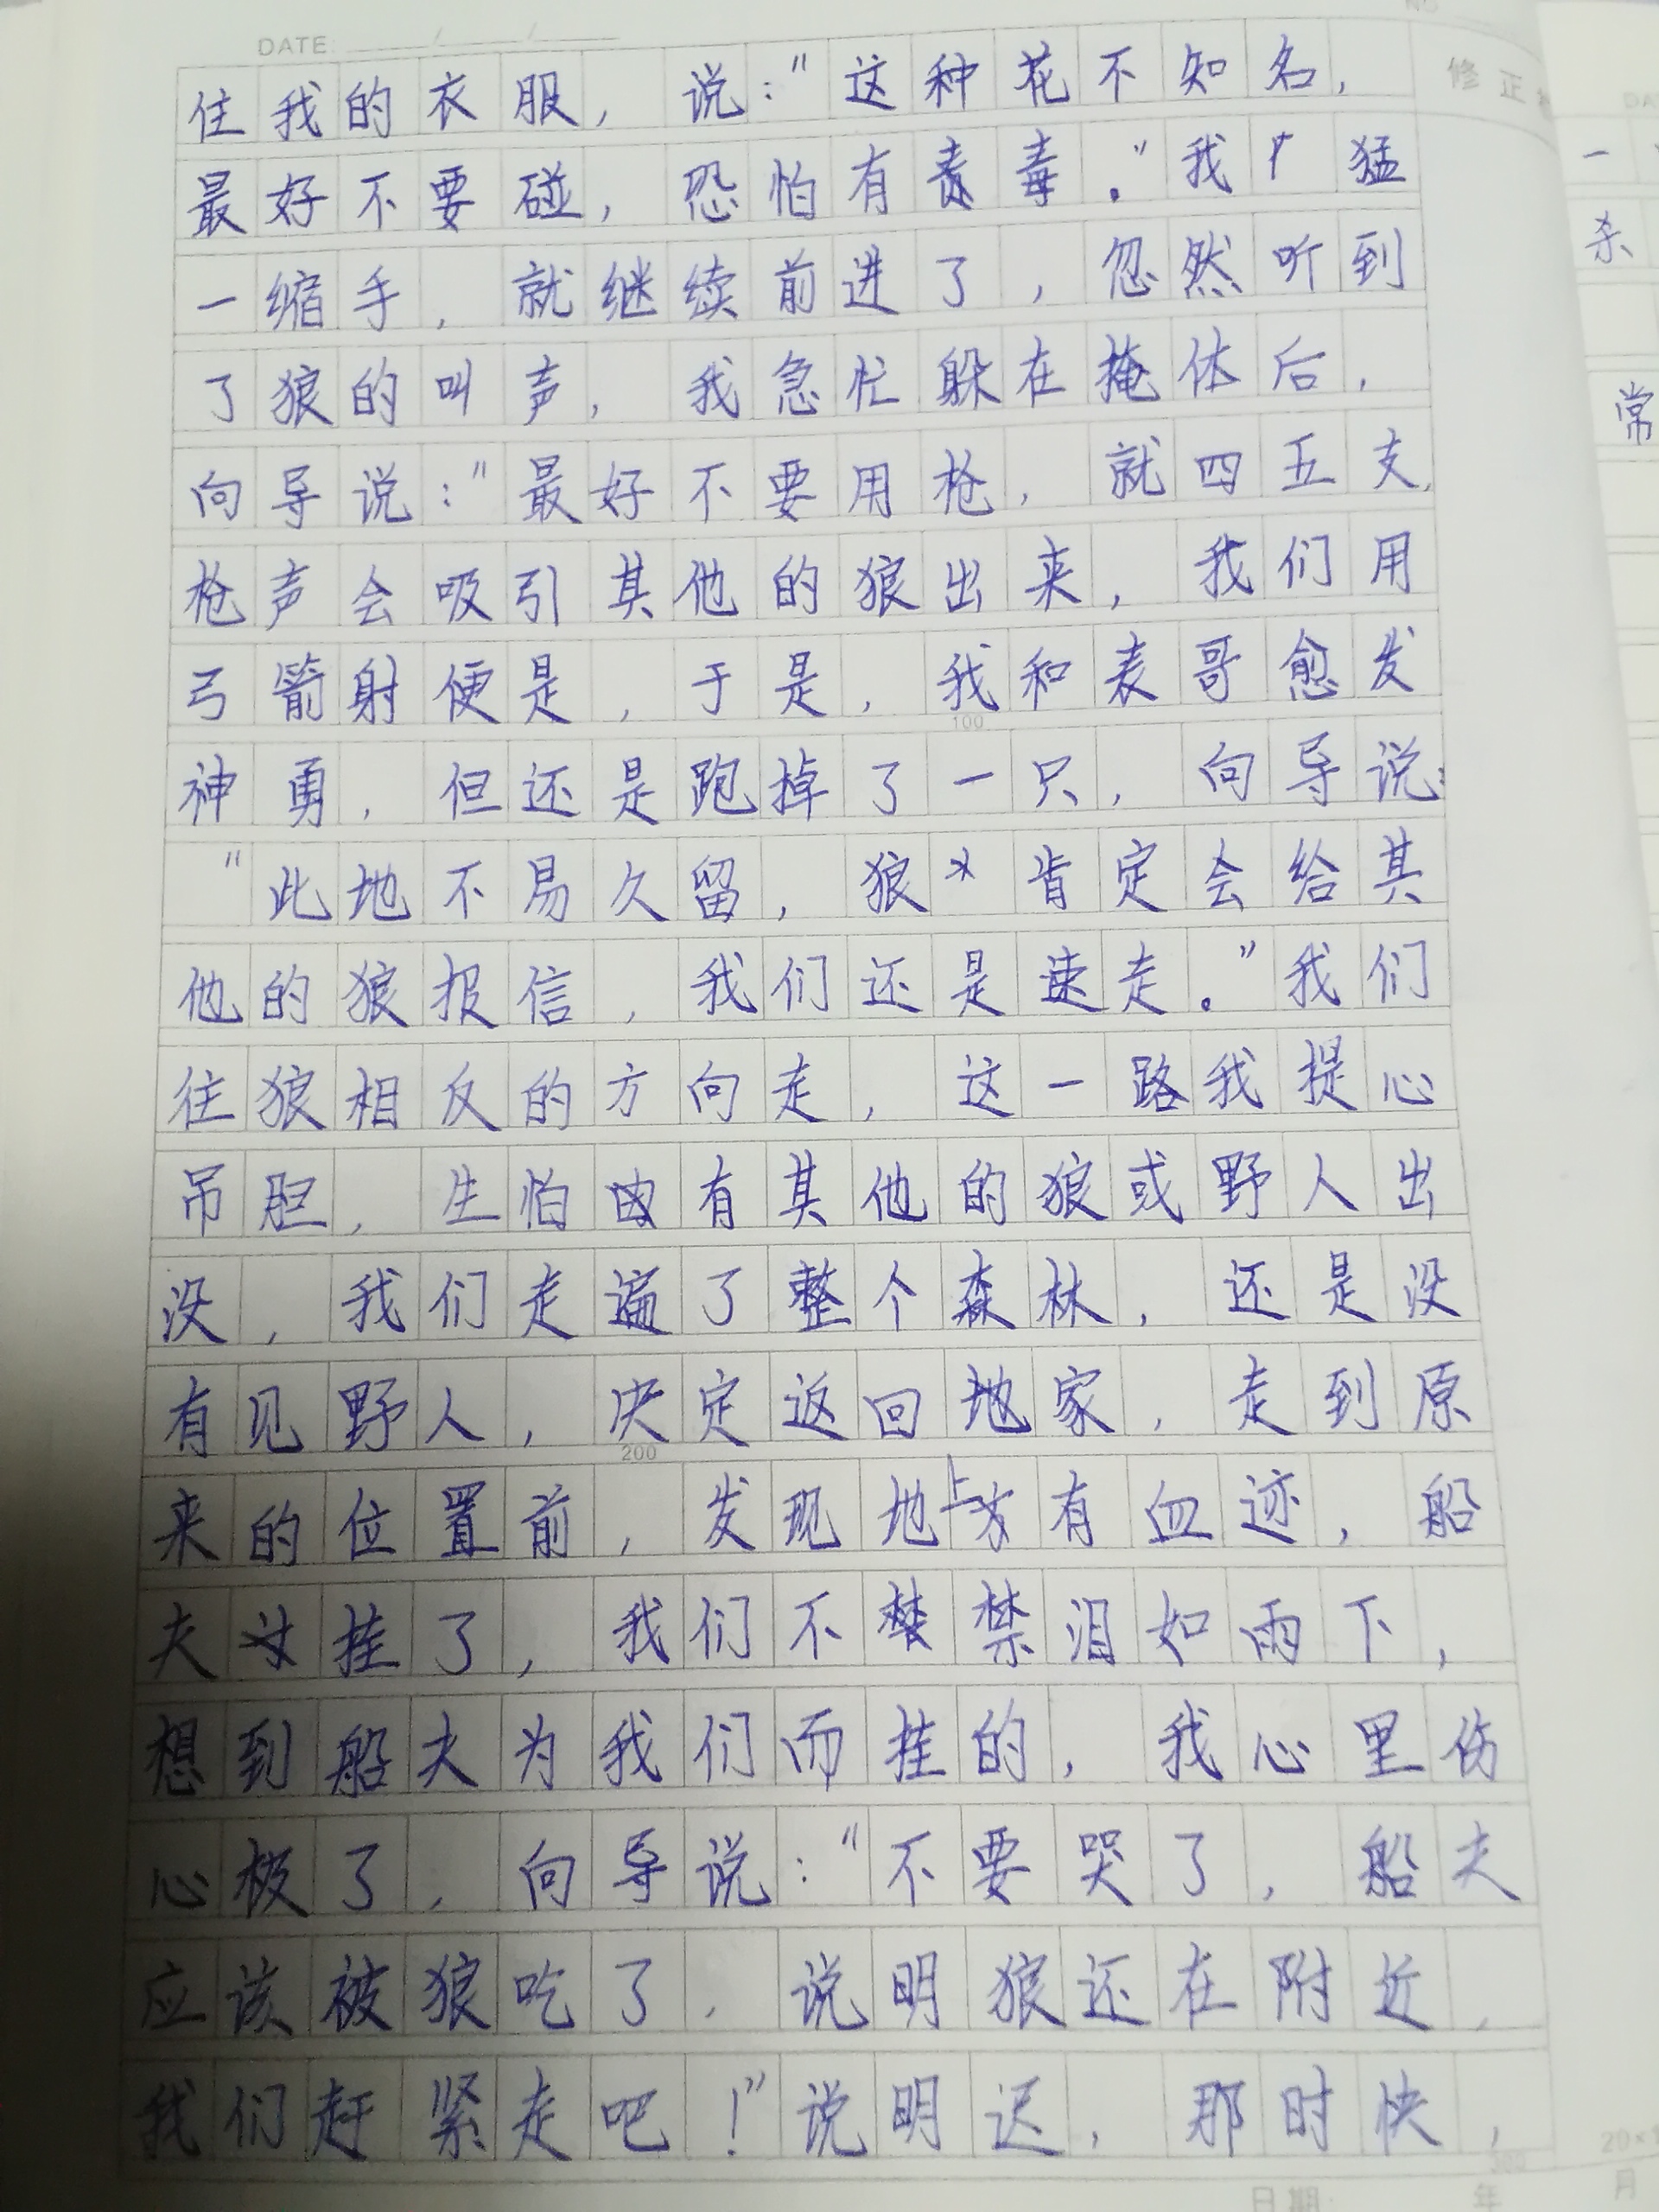 DATE: / /
NO
修正
住我的衣服，说：“这种花不知名，
最好不要碰，恐怕有毒。”我猛
一缩手，就继续前进了，忽然听到
了狼的叫声，我急忙躲在掩体后，
向导说：“最好不要用枪，就四五支，
枪声会吸引其他的狼出来，我们用
弓箭射便是，于是，我和表哥愈发
100
神勇，但还是跑掉了一只，向导说：
“此地不易久留，狼肯定会给其
他的狼报信，我们还是速走。”我们
往狼相反的方向走，这一路我提心
吊胆，生怕有其他的狼或野人出
没，我们走遍了整个森林，还是没
有见野人，决定返回家，走到原
200
来的位置前，发现地上有血迹，船
夫挂了，我们不禁泪如雨下，
想到船夫为我们而挂的，我心里伤
心极了，向导说：“不要哭了，船夫
应该被狼吃了，说明狼还在附近，
我们赶紧走吧！”说明迟，那时快，
300
日期： 年 月
一
杀
常